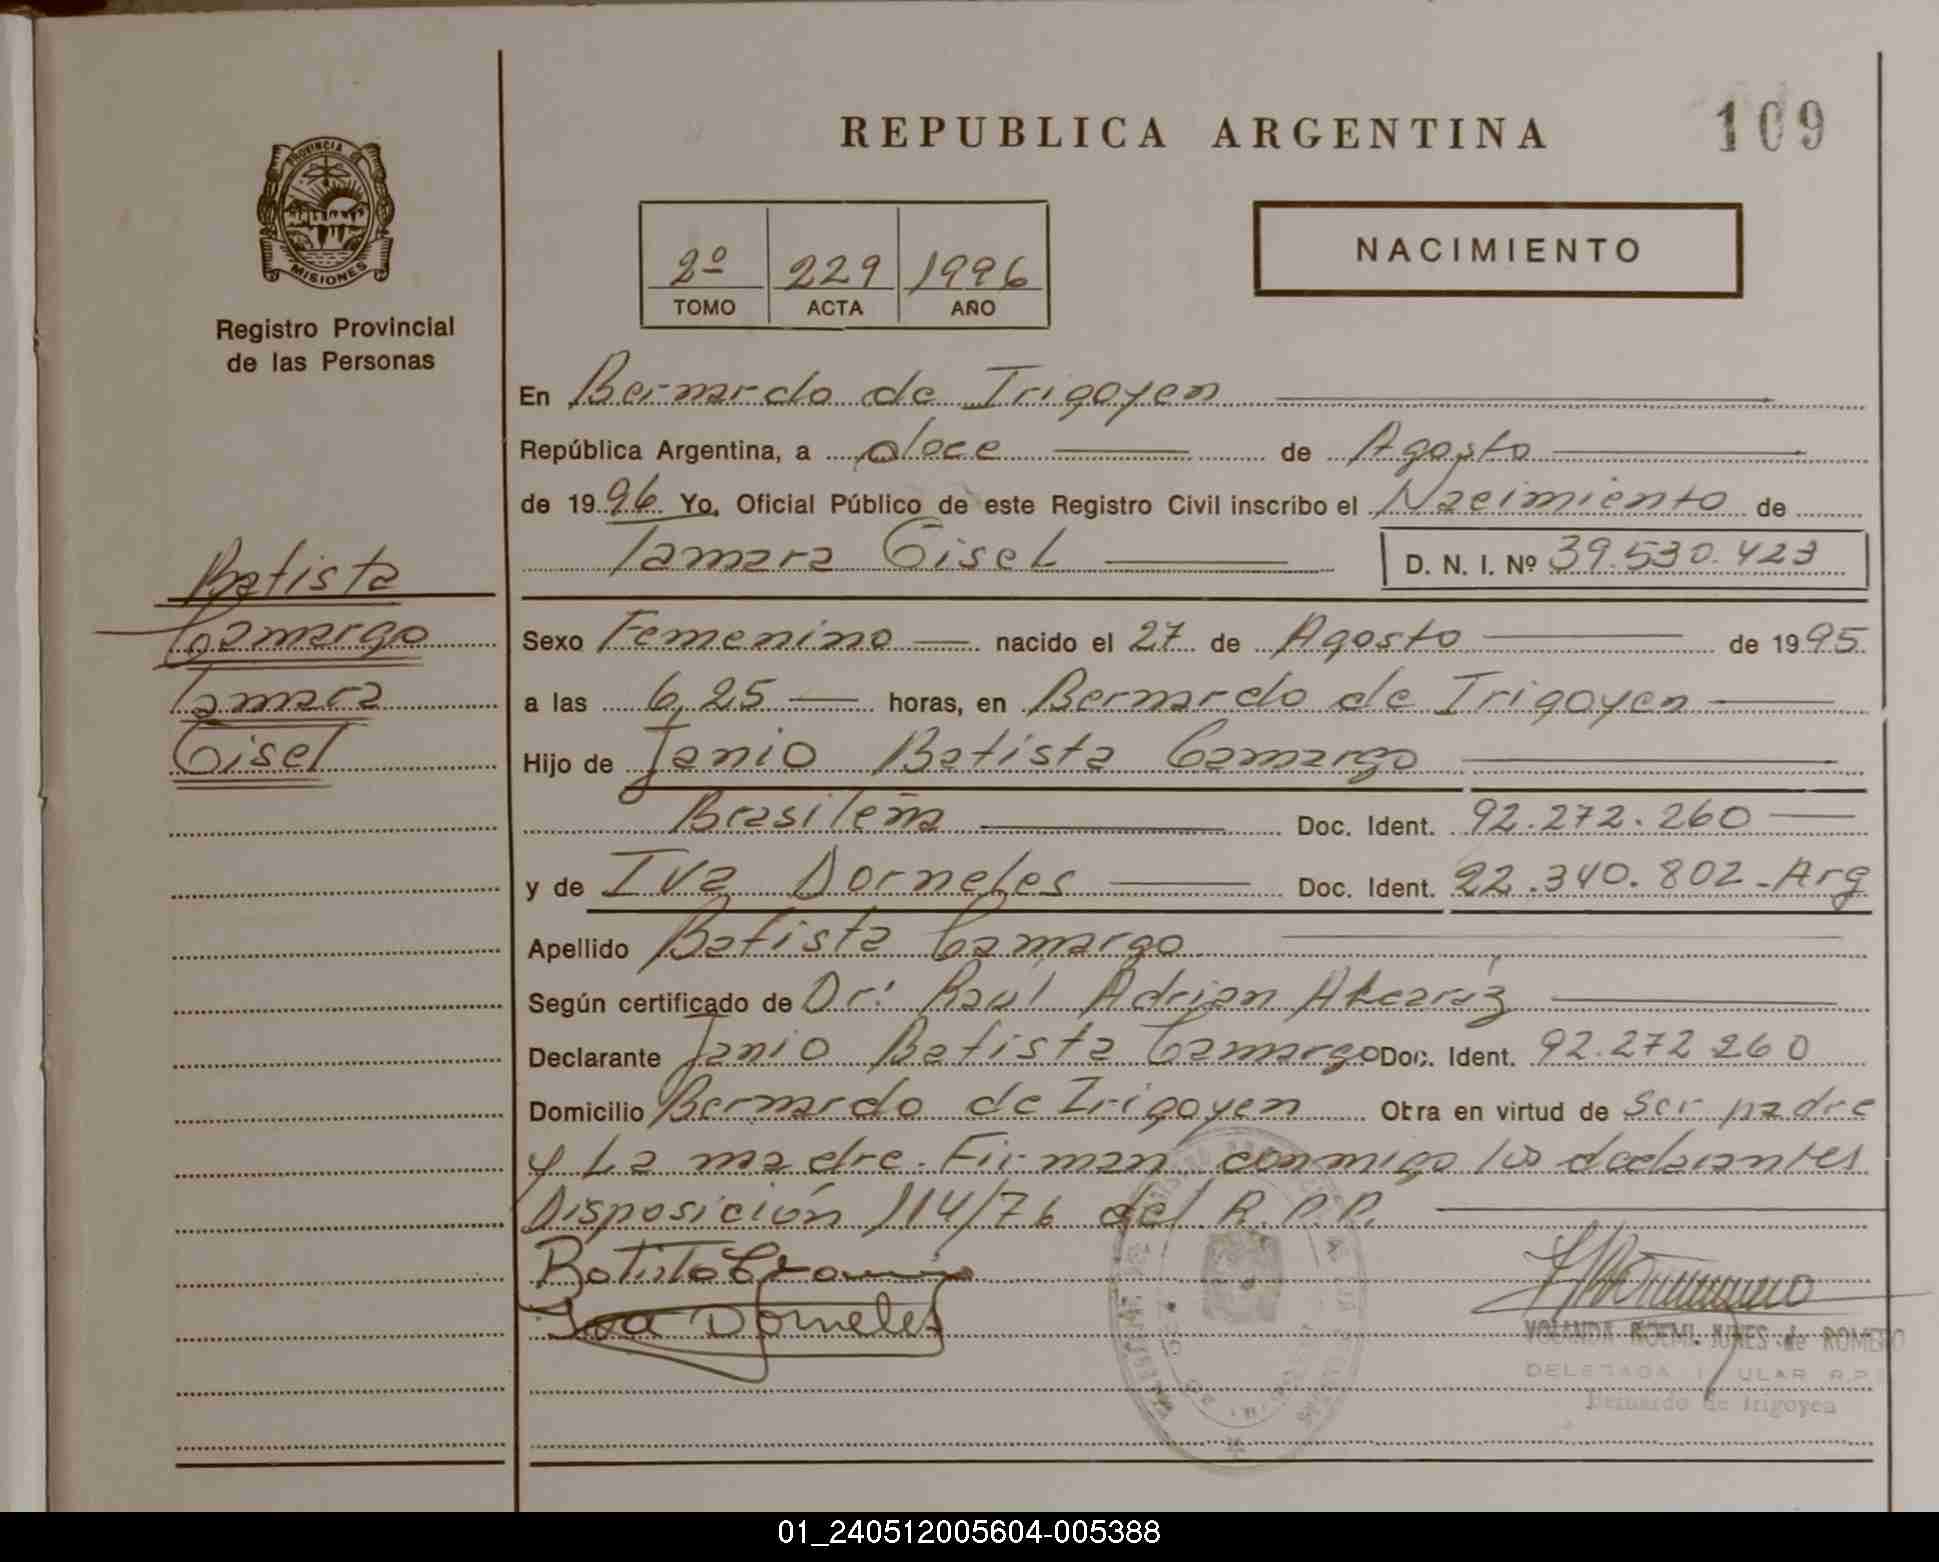 REPUBLICA ARGENTINA
109
PROVINCIA DE
MISIONES
Registro Provincial
de las Personas
2º 229 1996
TOMO ACTA AÑO
NACIMIENTO
En Bernardo de Irigoyen
República Argentina, a doce de Agosto
de 1996 Yo, Oficial Público de este Registro Civil inscribo el Nacimiento de
Tamara Gisel D. N. I. Nº 39.530.423
Batista
Camargo
Tamara
Gisel
Sexo Femenino nacido el 27 de Agosto de 1995
a las 6,25 horas, en Bernardo de Irigoyen
Hijo de Janio Batista Camargo
Brasileña Doc. Ident. 92.272.260
y de Iva Dorneles Doc. Ident. 22.340.802 - Arg
Apellido Batista Camargo
Según certificado de Dr: Raúl Adrian Alcaráz
Declarante Janio Batista Camargo Doc. Ident. 92.272.260
Domicilio Bernardo de Irigoyen Obra en virtud de ser padre
y La madre. Firman conmigo los declarantes
Disposición 114/76 del R.P.P.
Iva Dorneles
YOLANDA NOEMI JUNES de ROMERO
DELEGADA TITULAR R.P.
Bernardo de Irigoyen
01_240512005604-005388